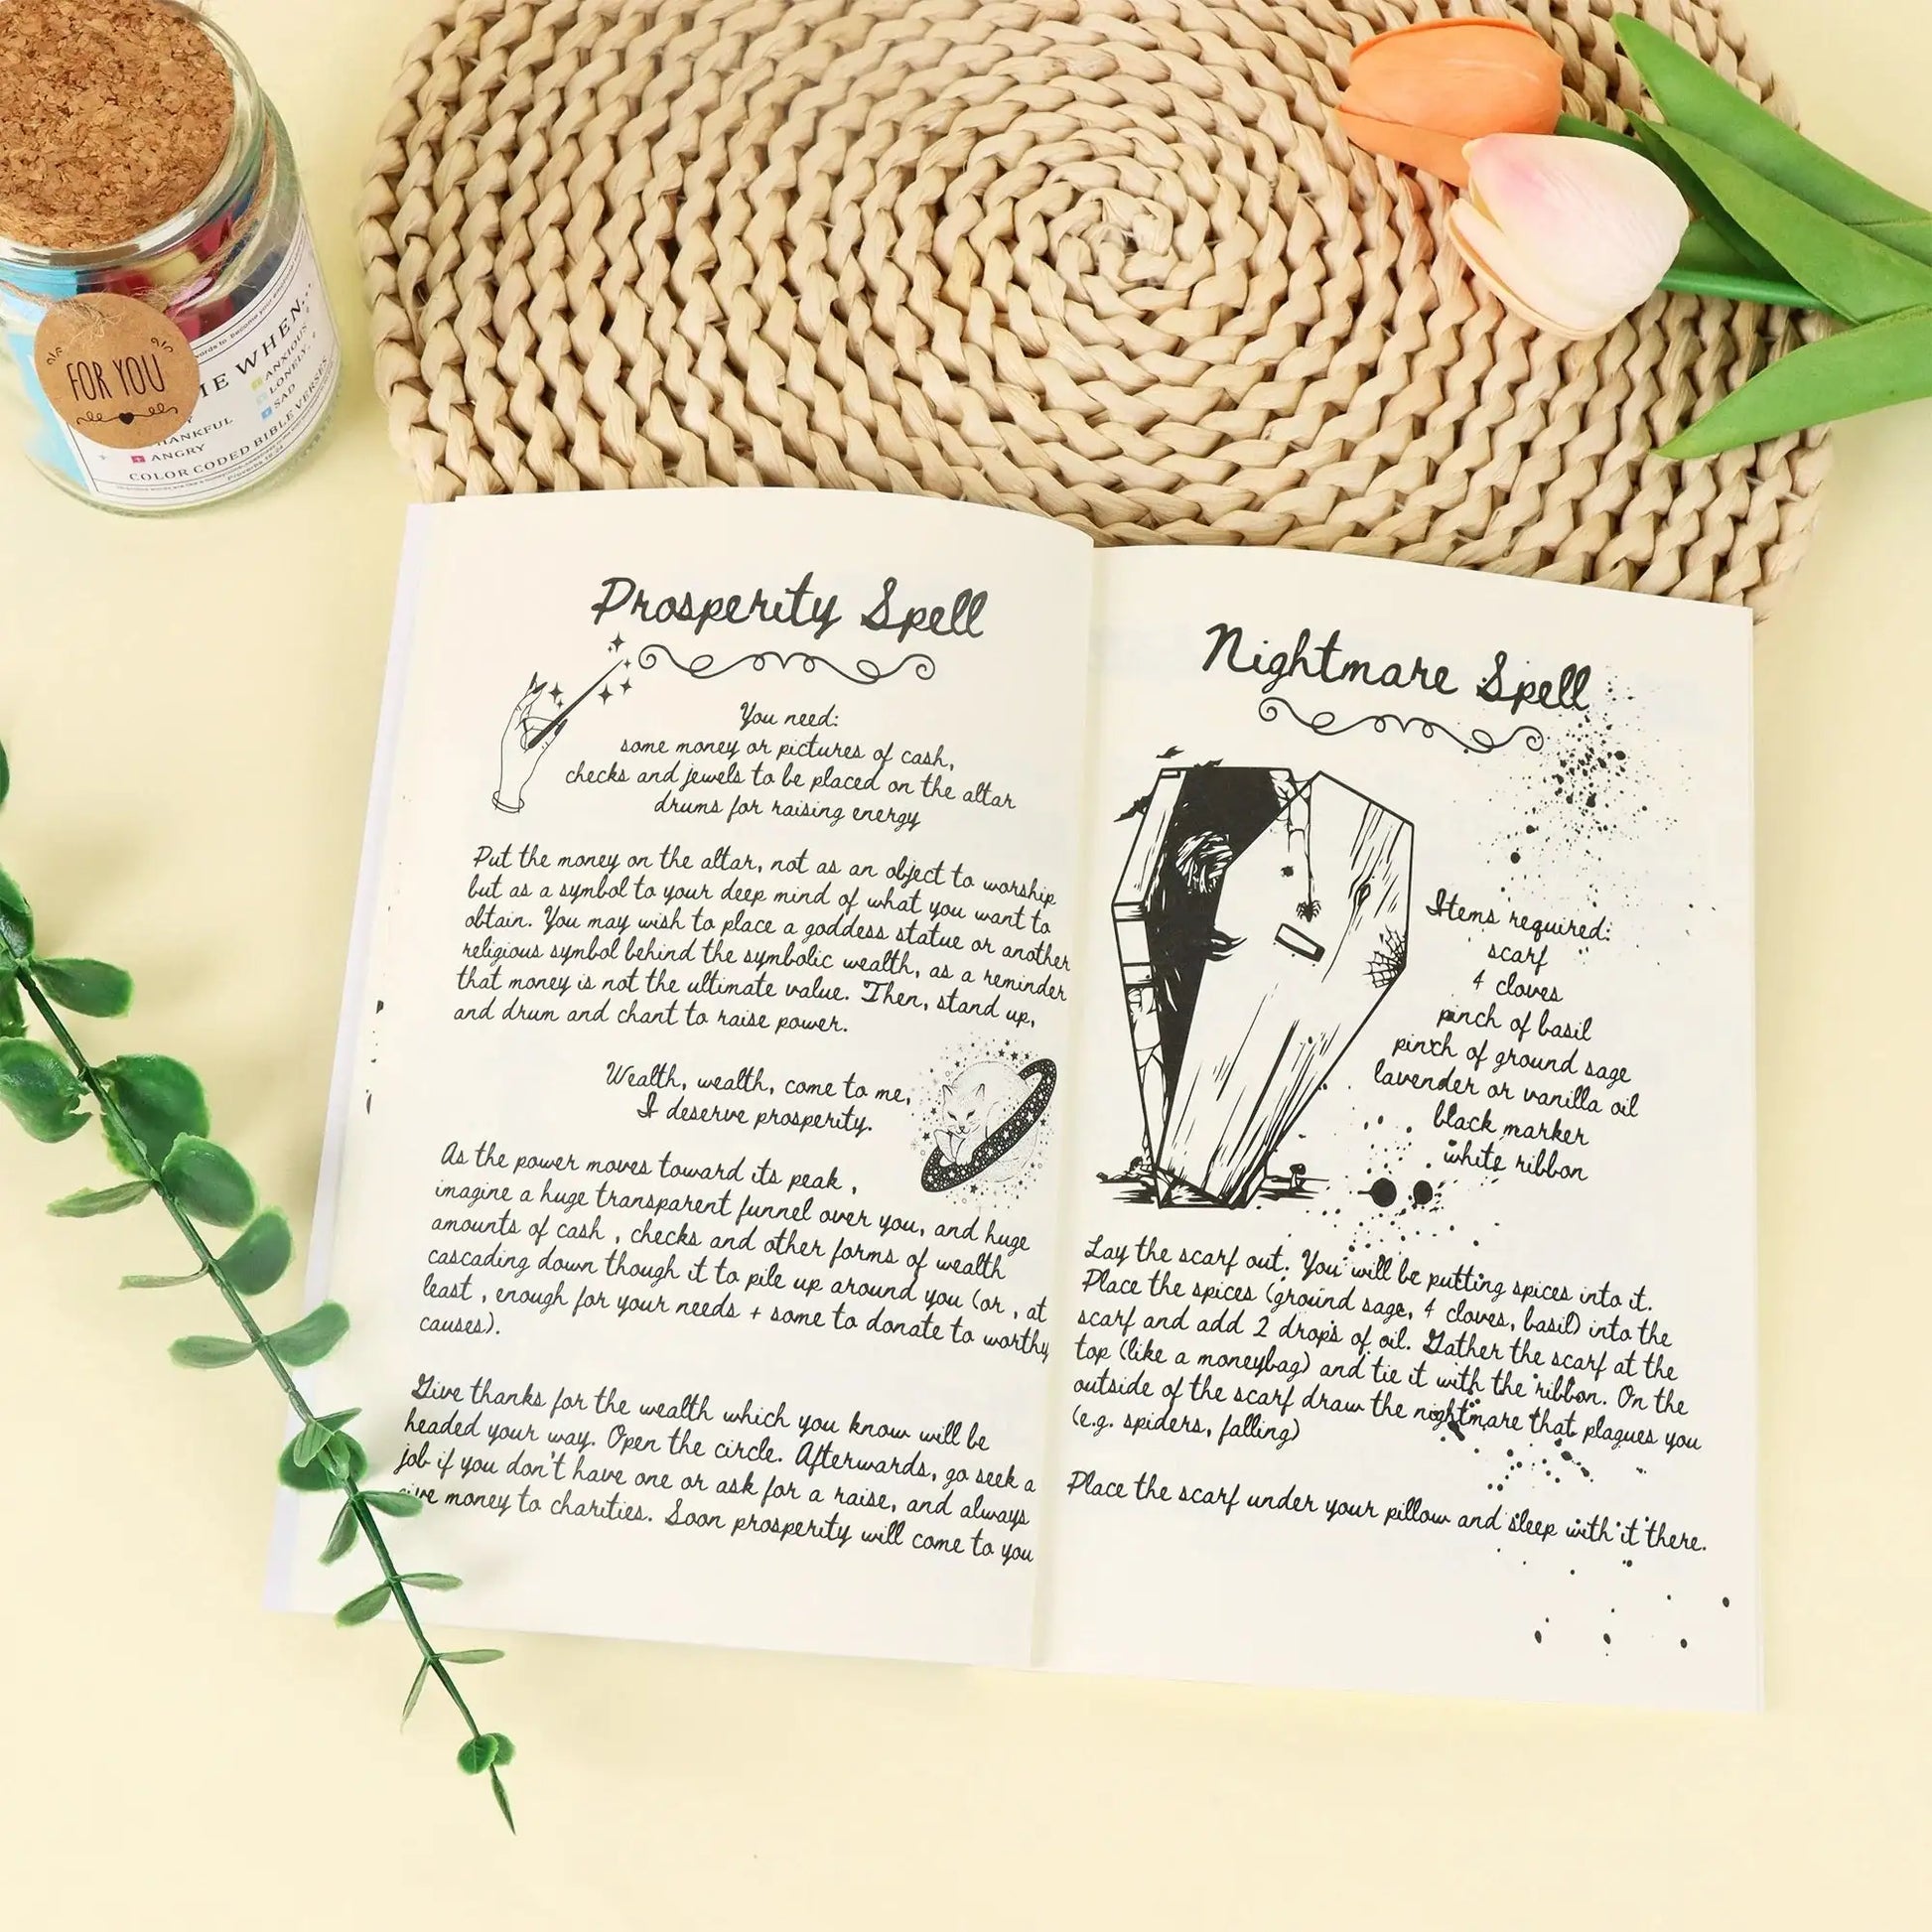 FOR YOU
ME WHEN...
ANXIOUS
LONELY
SAD
ANGRY
COLOR CODED BIBLE VERSES
Prosperity Spell
You need:
some money or pictures of cash,
checks and jewels to be placed on the altar
drums for raising energy
Put the money on the altar, not as an object to worship
but as a symbol to your deep mind of what you want to
obtain. You may wish to place a goddess statue or another
religious symbol behind the symbolic wealth, as a reminder
that money is not the ultimate value. Then, stand up,
and drum and chant to raise power.
Wealth, wealth, come to me,
I deserve prosperity.
As the power moves toward its peak ,
imagine a huge transparent funnel over you, and huge
amounts of cash , checks and other forms of wealth
cascading down though it to pile up around you (or , at
least , enough for your needs + some to donate to worthy
causes).
Give thanks for the wealth which you know will be
headed your way. Open the circle. Afterwards, go seek a
job if you don't have one or ask for a raise, and always
give money to charities. Soon prosperity will come to you
Nightmare Spell
Items required:
scarf
4 cloves
pinch of basil
pinch of ground sage
lavender or vanilla oil
black marker
white ribbon
Lay the scarf out. You will be putting spices into it.
Place the spices (ground sage, 4 cloves, basil) into the
scarf and add 2 drops of oil. Gather the scarf at the
top (like a moneybag) and tie it with the ribbon. On the
outside of the scarf draw the nightmare that plagues you
(e.g. spiders, falling)
Place the scarf under your pillow and sleep with it there.